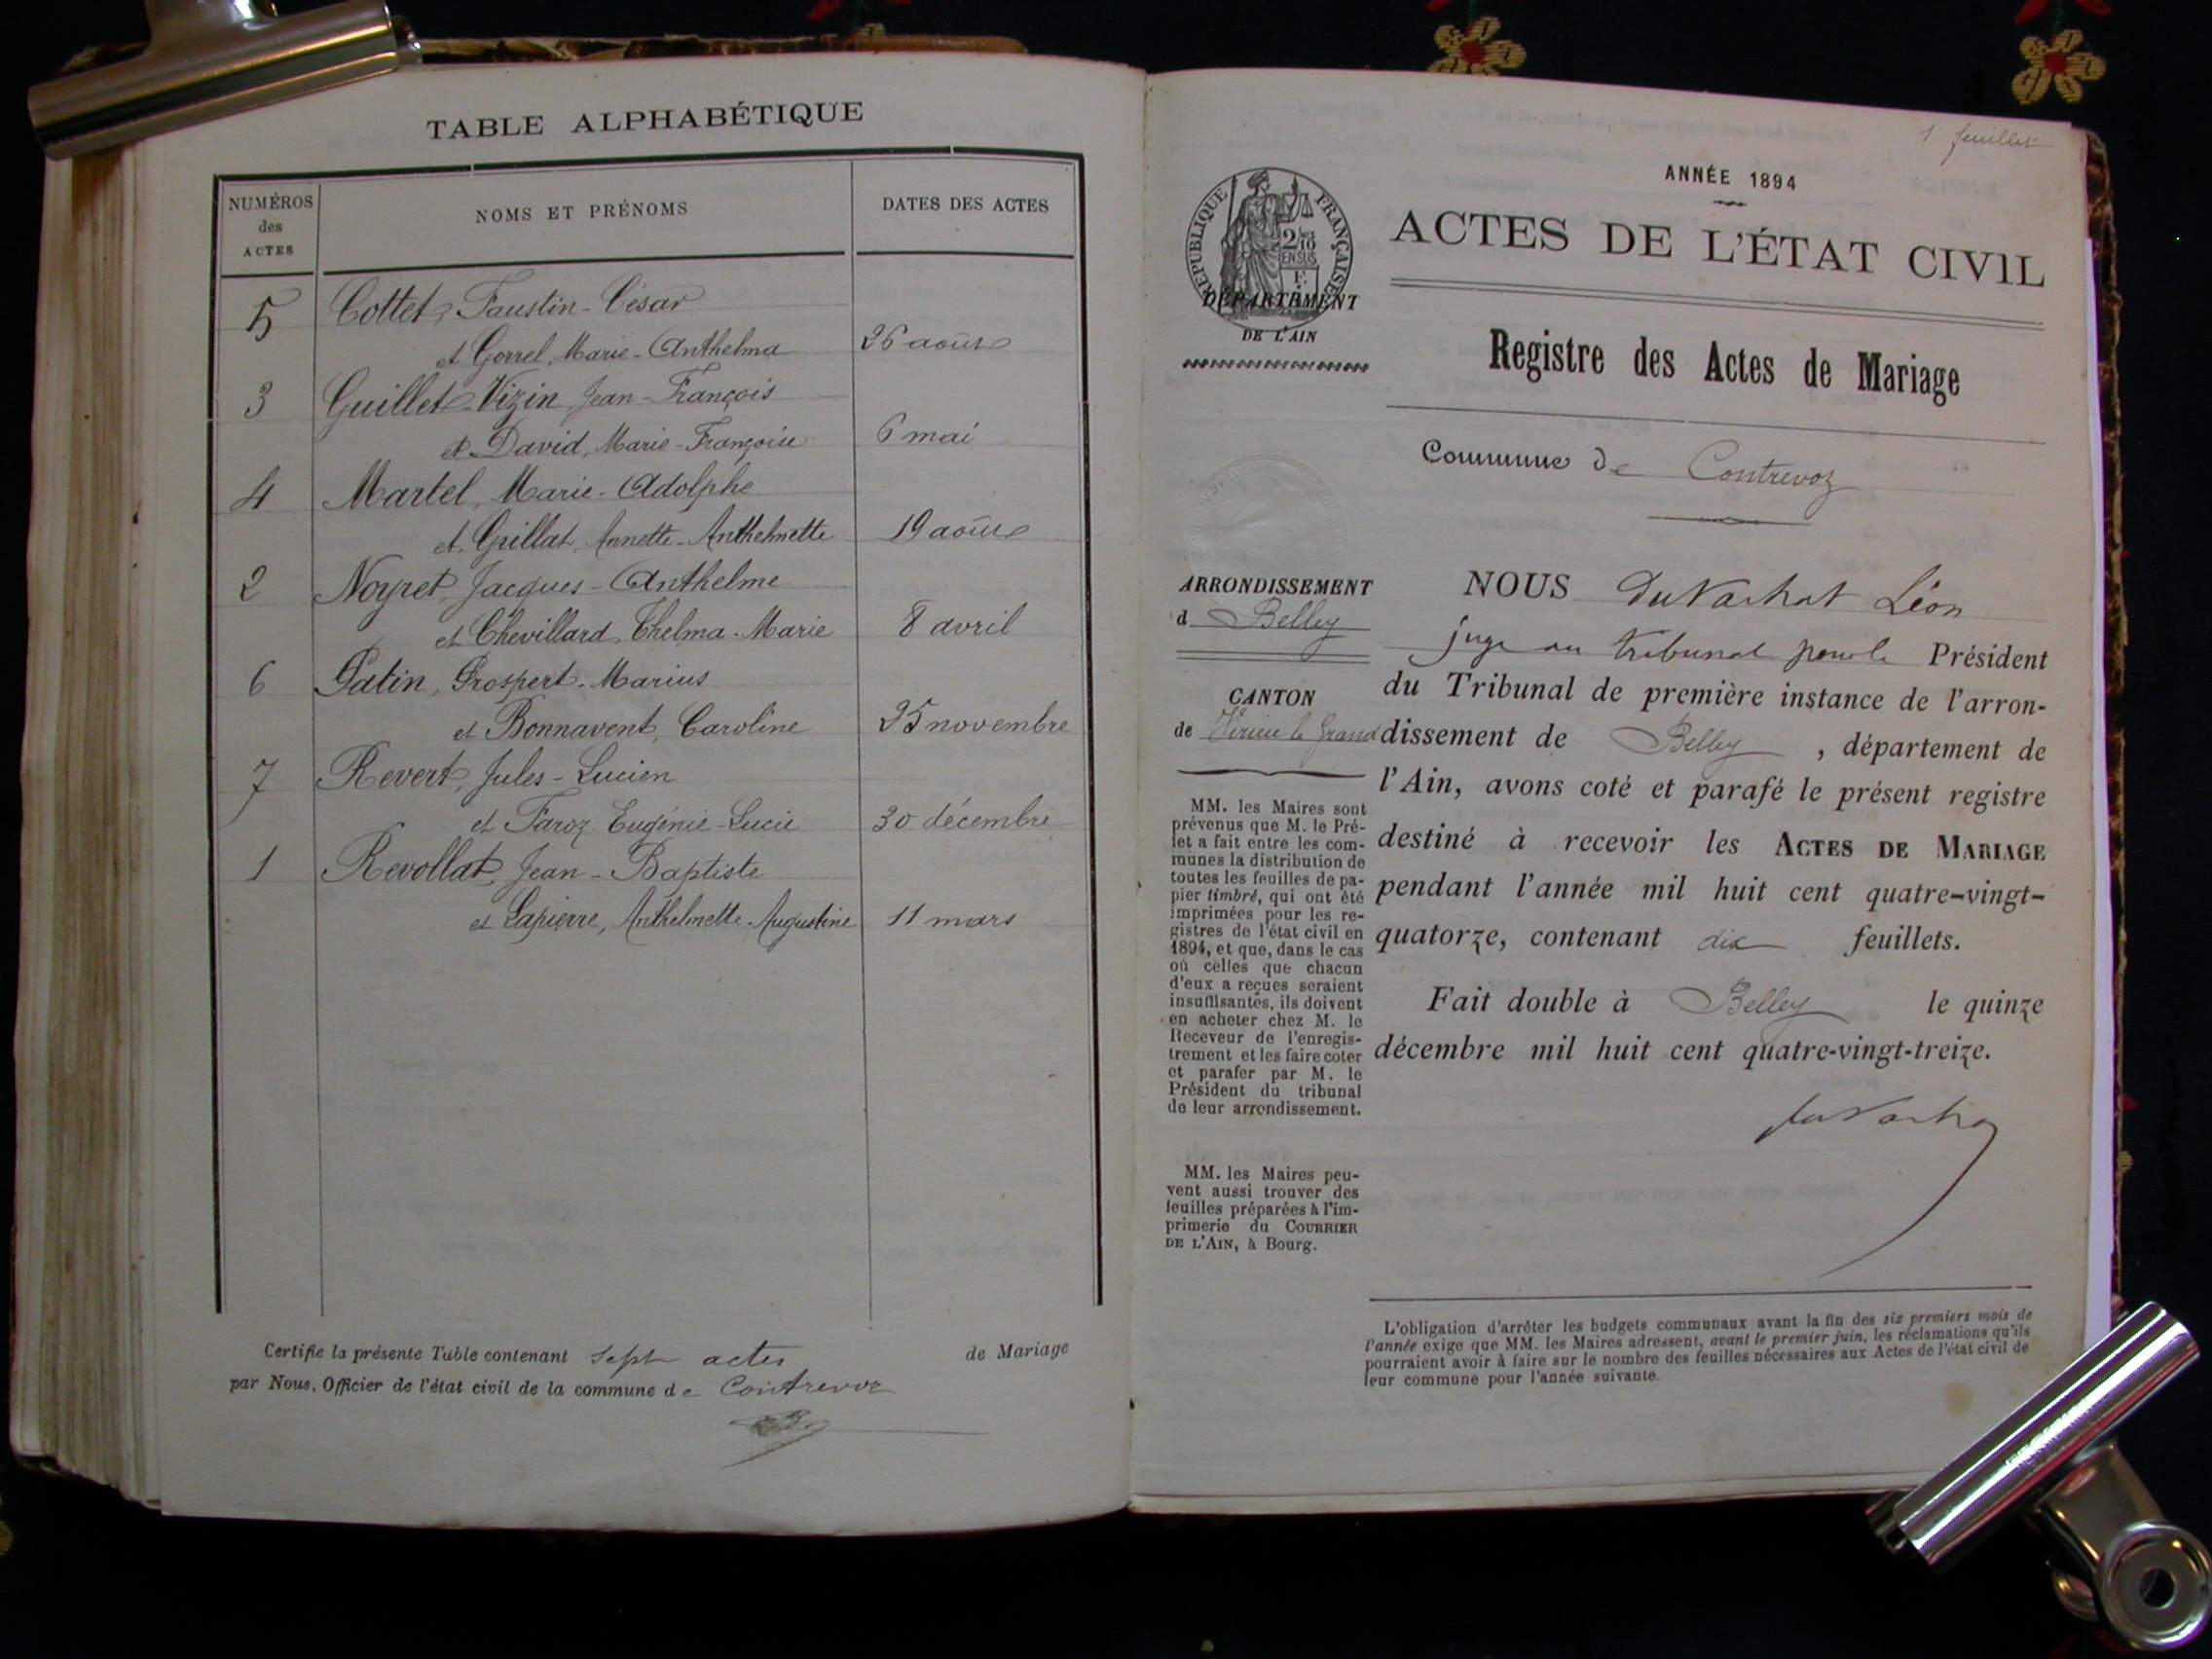 TABLE ALPHABÉTIQUE
NUMÉROS
des
ACTES
NOMS ET PRÉNOMS
DATES DES ACTES
5 Cottet, Faustin-César
et Gorrel, Marie-Anthelma 26 août
3 Guillet-Vizin Jean-François
et David, Marie-Françoise 6 mai
4 Martel, Marie-Adolphe
et Grillat, Annette-Anthelmette 19 août
2 Noyret, Jacques-Anthelme
et Chevillard, Thelma-Marie 8 avril
6 Patin, Prospert-Marius
et Bonnavent, Caroline 25 novembre
7 Revert, Jules-Lucien
et Faroz Eugénie-Lucie 30 décembre
1 Revollat, Jean-Baptiste
et Lapierre, Anthelmette-Augustine 11 mars
Certifie la présente Table contenant sept actes de Mariage
par Nous, Officier de l'état civil de la commune de Contrevoz
1r feuillet
ANNÉE 1894
ACTES DE L'ÉTAT CIVIL
RÉPUBLIQUE FRANÇAISE
2/10
EN SUS
DÉPARTEMENT
DE L'AIN
Registre des Actes de Mariage
Commune de Contrevoz
ARRONDISSEMENT
d Belley
CANTON
de Virieu le Grand
MM. les Maires sont
prévenus que M. le Pré-
fet a fait entre les com-
munes la distribution de
toutes les feuilles de pa-
pier timbré, qui ont été
imprimées pour les re-
gistres de l'état civil en
1894, et que, dans le cas
où celles que chacun
d'eux a reçues seraient
insuffisantes, ils doivent
en acheter chez M. le
Receveur de l'enregis-
trement et les faire coter
et parafer par M. le
Président du tribunal
de leur arrondissement.
MM. les Maires peu-
vent aussi trouver des
feuilles préparées à l'im-
primerie du COURRIER
DE L'AIN, à Bourg.
NOUS duVachat Léon
juge au tribunal pour le Président
du Tribunal de première instance de l'arron-
dissement de Belley, département de
l'Ain, avons coté et parafé le présent registre
destiné à recevoir les ACTES DE MARIAGE
pendant l'année mil huit cent quatre-vingt-
quatorze, contenant dix feuillets.
Fait double à Belley le quinze
décembre mil huit cent quatre-vingt-treize.
duVachat
L'obligation d'arrêter les budgets communaux avant la fin des six premiers mois de
l'année exige que MM. les Maires adressent, avant le premier juin, les réclamations qu'ils
pourraient avoir à faire sur le nombre des feuilles nécessaires aux Actes de l'état civil de
leur commune pour l'année suivante.